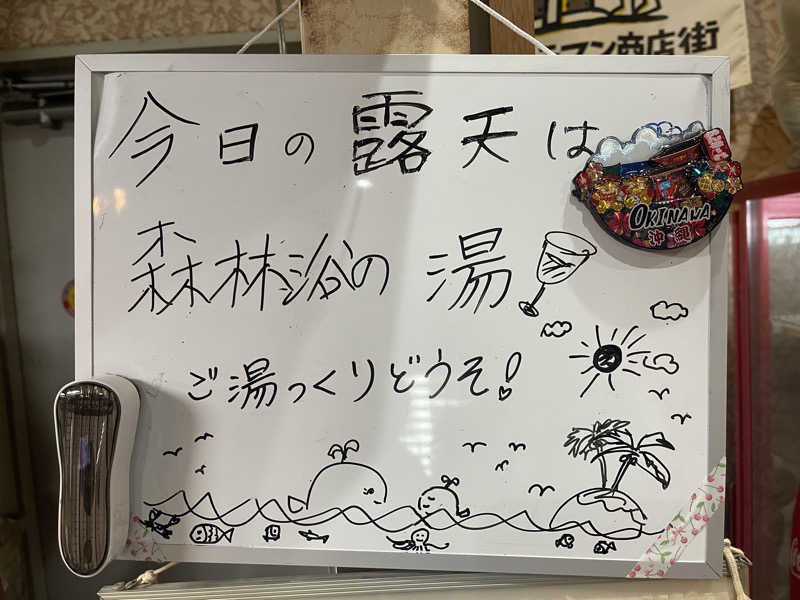 マン商店街
今日の露天は
OKINAWA
沖縄
森林浴の湯
ご湯っくりどうぞ!